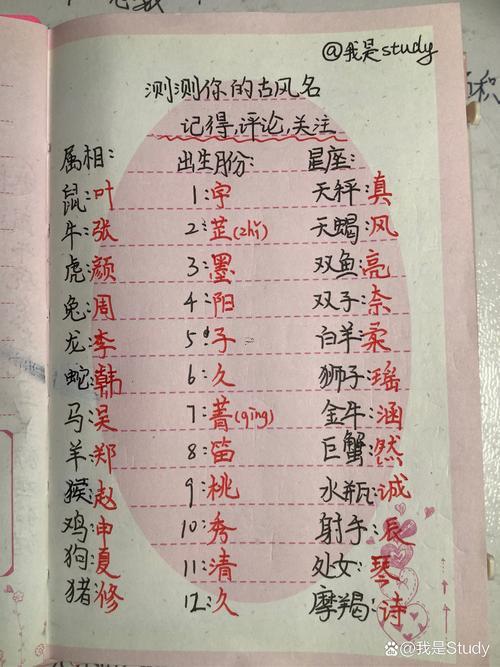 @我是study
测测你的古风名
记得,评论,关注
属相: 出生月份: 星座:
鼠:叶 1:宇 天秤:真
牛:张 2:芷(zhǐ) 天蝎:风
虎:颜 3:墨 双鱼:亮
兔:周 4:阳 双子:奈
龙:李 5:子 白羊:柔
蛇:韩 6:久 狮子:瑶
马:吴 7:菁(qing) 金牛:涵
羊:郑 8:笛 巨蟹:然
猴:赵 9:桃 水瓶:诚
鸡:申 10:秀 射手:辰
狗:夏 11:清 处女:琴
猪:修 12:久 摩羯:诗
@我是Study